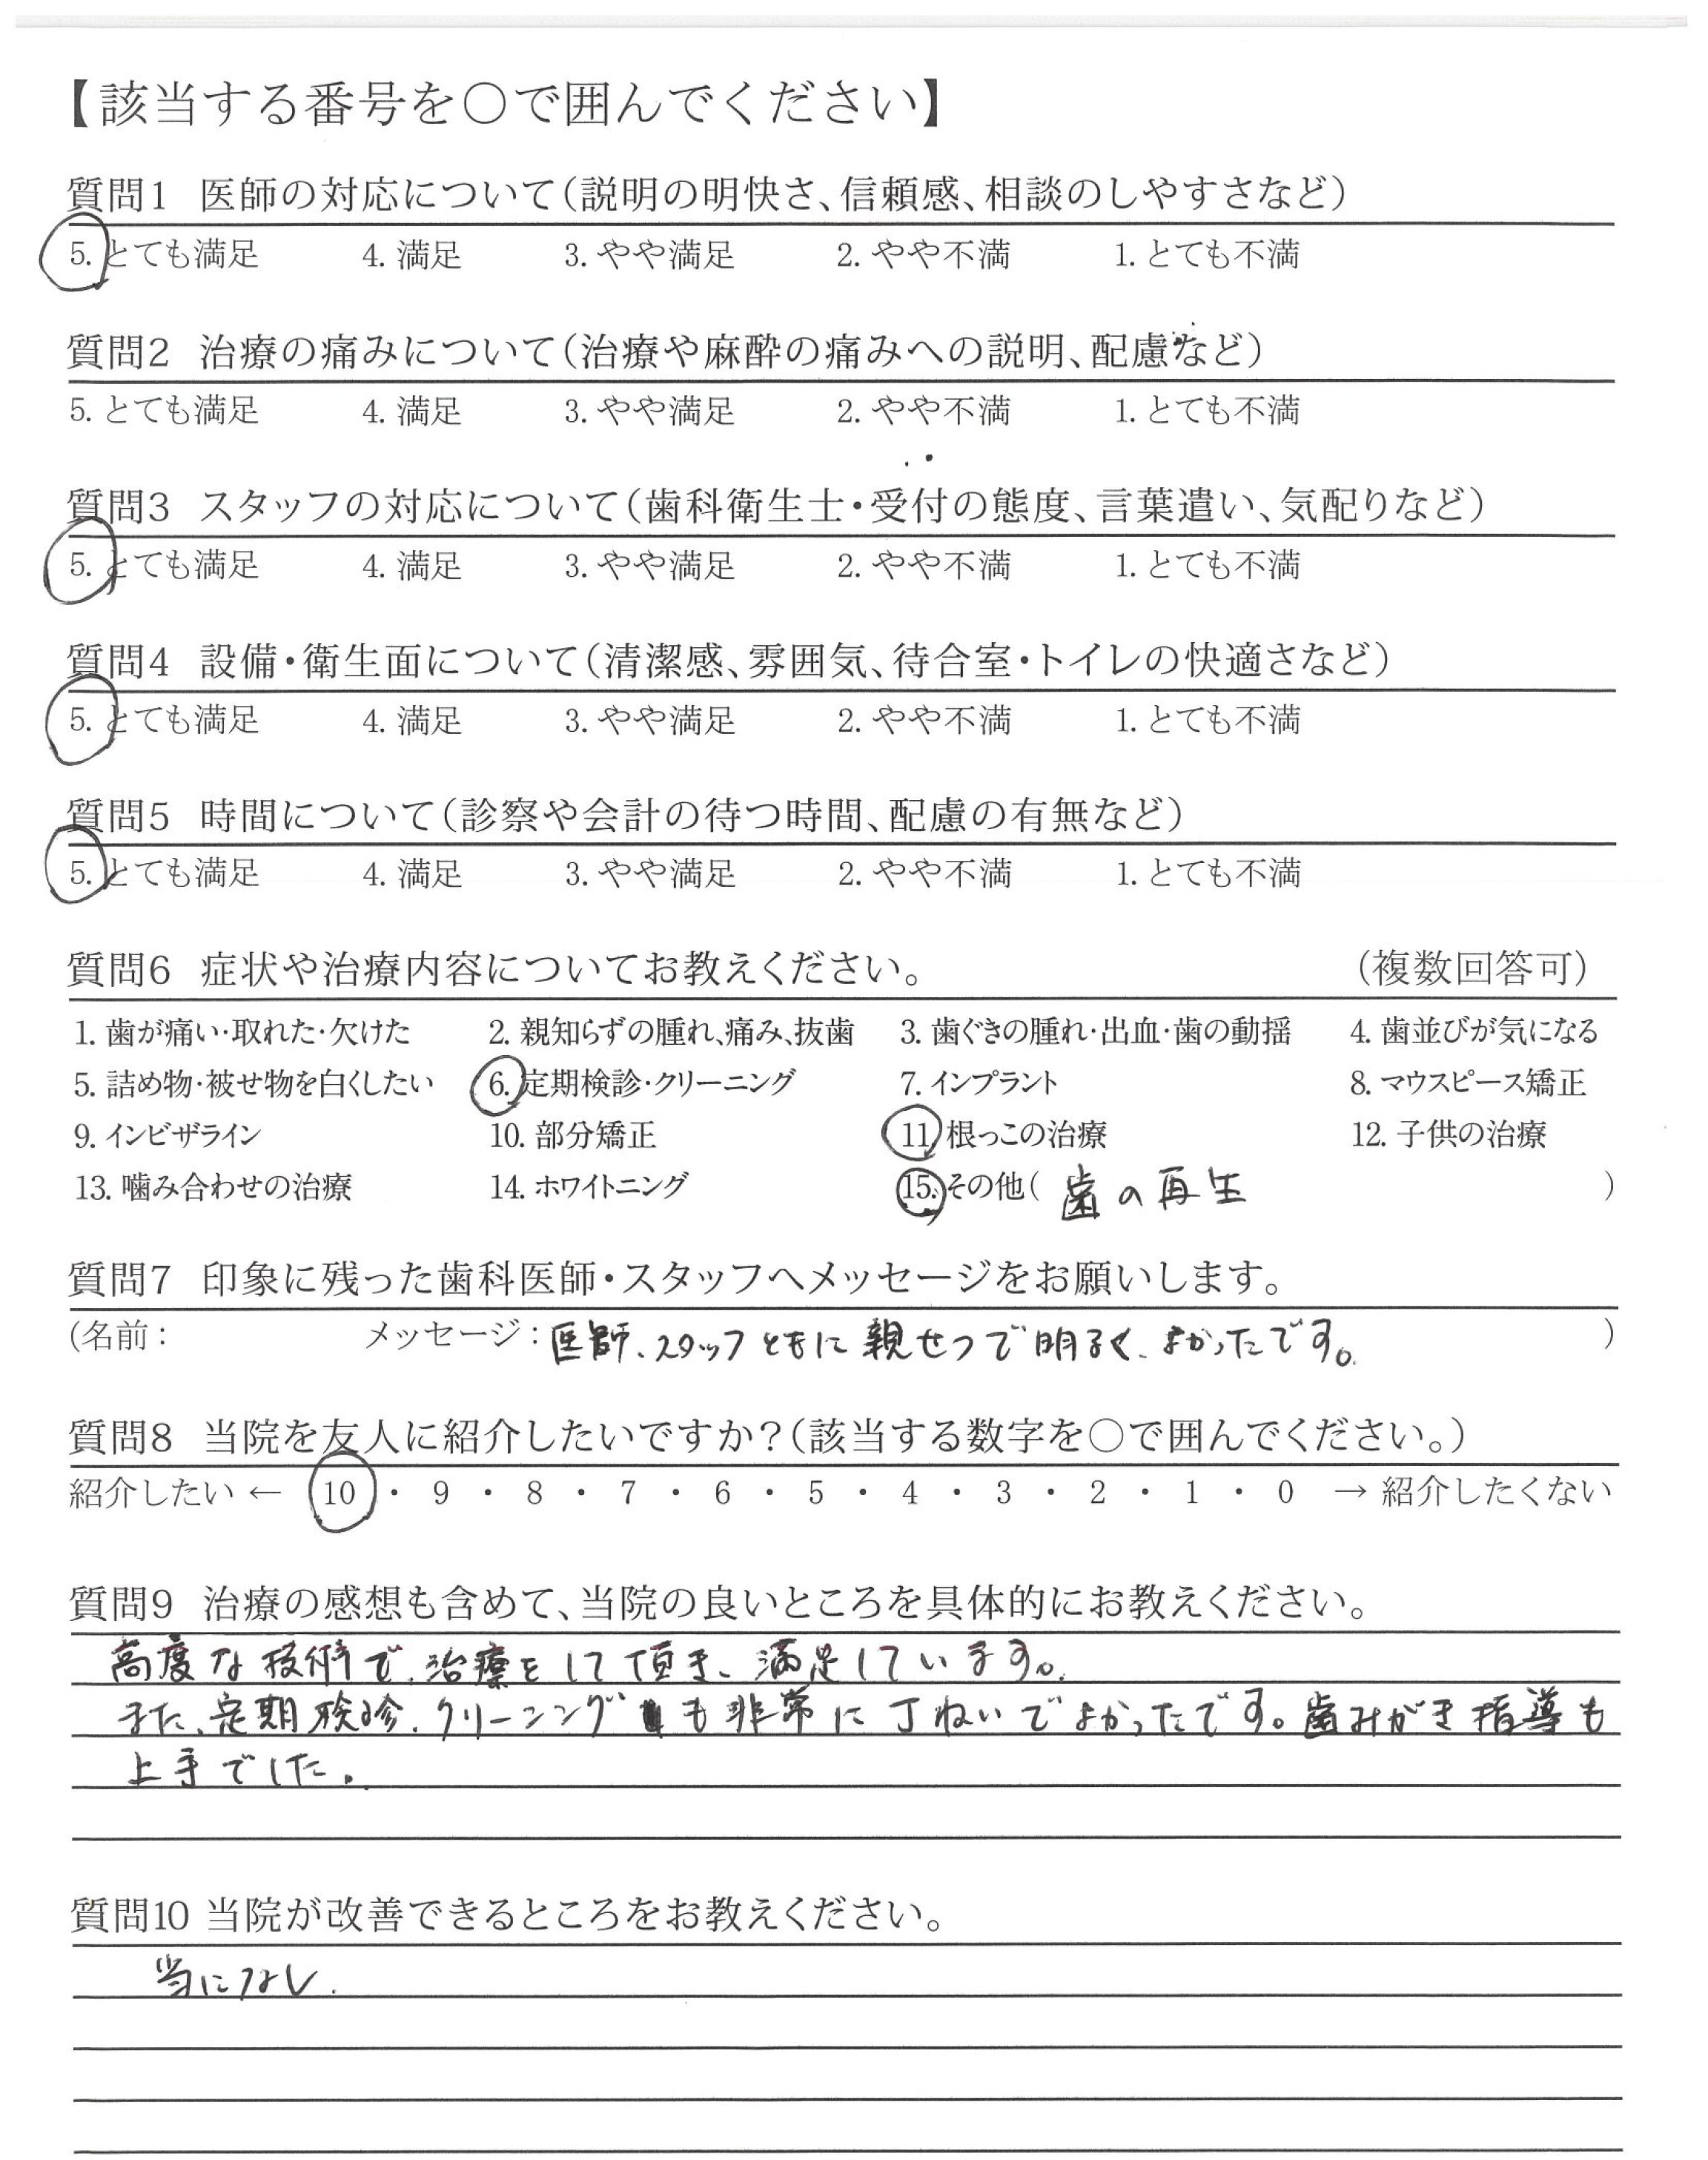 【該当する番号を○で囲んでください】
質問1 医師の対応について(説明の明快さ、信頼感、相談のしやすさなど)
5. とても満足 4. 満足 3. やや満足 2. やや不満 1. とても不満
質問2 治療の痛みについて(治療や麻酔の痛みへの説明、配慮など)
5. とても満足 4. 満足 3. やや満足 2. やや不満 1. とても不満
質問3 スタッフの対応について(歯科衛生士・受付の態度、言葉遣い、気配りなど)
5. とても満足 4. 満足 3. やや満足 2. やや不満 1. とても不満
質問4 設備・衛生面について(清潔感、雰囲気、待合室・トイレの快適さなど)
5. とても満足 4. 満足 3. やや満足 2. やや不満 1. とても不満
質問5 時間について(診察や会計の待つ時間、配慮の有無など)
5. とても満足 4. 満足 3. やや満足 2. やや不満 1. とても不満
質問6 症状や治療内容についてお教えください。 (複数回答可)
1. 歯が痛い・取れた・欠けた 2. 親知らずの腫れ、痛み、抜歯 3. 歯ぐきの腫れ・出血・歯の動揺 4. 歯並びが気になる
5. 詰め物・被せ物を白くしたい 6. 定期検診・クリーニング 7. インプラント 8. マウスピース矯正
9. インビザライン 10. 部分矯正 11. 根っこの治療 12. 子供の治療
13. 噛み合わせの治療 14. ホワイトニング 15. その他( 歯の再生 )
質問7 印象に残った歯科医師・スタッフへメッセージをお願いします。
(名前: メッセージ: 医師、スタッフともに親せつで明るく、よかったです。 )
質問8 当院を友人に紹介したいですか?(該当する数字を○で囲んでください。)
紹介したい ← 10 ・ 9 ・ 8 ・ 7 ・ 6 ・ 5 ・ 4 ・ 3 ・ 2 ・ 1 ・ 0 → 紹介したくない
質問9 治療の感想も含めて、当院の良いところを具体的にお教えください。
高度な技術で、治療をして頂き、満足しています。
また、定期検診、クリーニングも非常に丁ねいでよかったです。歯みがき指導も
上手でした。
質問10 当院が改善できるところをお教えください。
当になし.